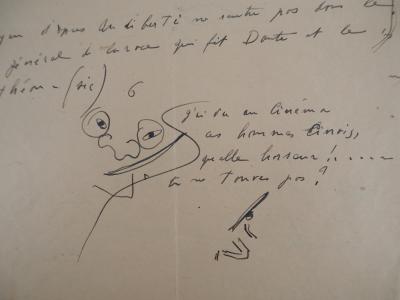 d'opus de liberté ne rentre pas dans le
général de la race qui fit Dante et le
théon - (sic)
6
j'ai vu au Cinéma
ces hommes Chinois,
quelle horreur!! . . . . .
tu ne trouves pas?